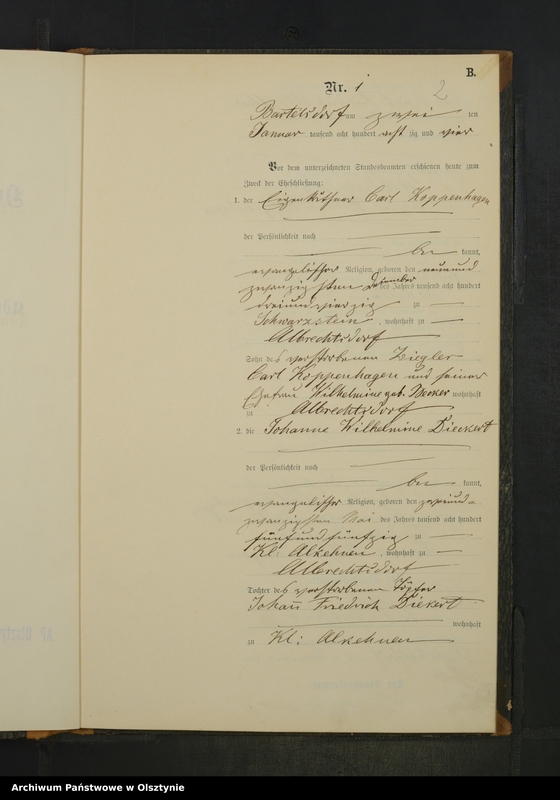 B.
Nr. 1
2
Bartelsdorf am zwei ten
Januar tausend acht hundert acht zig und vier
Vor dem unterzeichneten Standesbeamten erschienen heute zum
Zweck der Eheschließung:
1. der Eigenkäthner Carl Koppenhagen
der Persönlichkeit nach
be kannt,
evangelischer Religion, geboren den neunund
zwanzigsten Dezember des Jahres tausend acht hundert
dreiundvierzig zu
Schwarzstein, wohnhaft zu
Albrechtsdorf
Sohn des verstorbenen Ziegler
Carl Koppenhagen und seiner
Ehefrau Wilhelmine geb. Becker wohnhaft
zu Albrechtsdorf
2. die Johanne Wilhelmine Dieckert
der Persönlichkeit nach
be kannt,
evangelischer Religion, geboren den zweiund-
zwanzigsten Mai des Jahres tausend acht hundert
fünfundfünfzig zu
Kl: Alkehnen, wohnhaft zu
Albrechtsdorf
Tochter des verstorbenen Töpfer
Johann Friedrich Diekert
wohnhaft
zu Kl: Alkehnen
Archiwum Państwowe w Olsztynie